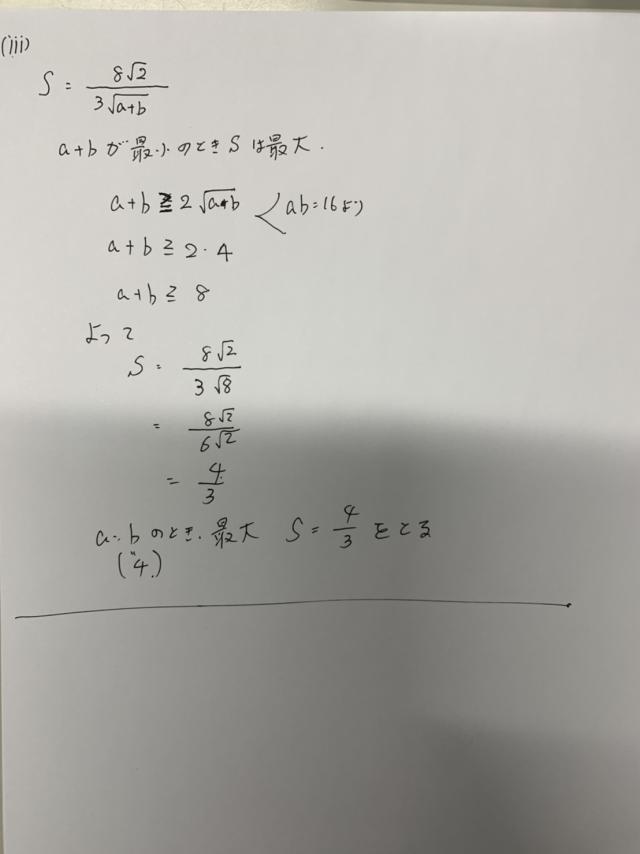 (iii)
S = 8√2 / 3√(a+b)
a+bが最小のときSは最大.
a+b ≧ 2√(a+b) ab=16より
a+b ≧ 2・4
a+b ≧ 8
よって
S = 8√2 / 3√8
= 8√2 / 6√2
= 4/3
a=bのとき、最大 S = 4/3 をとる
("4.)